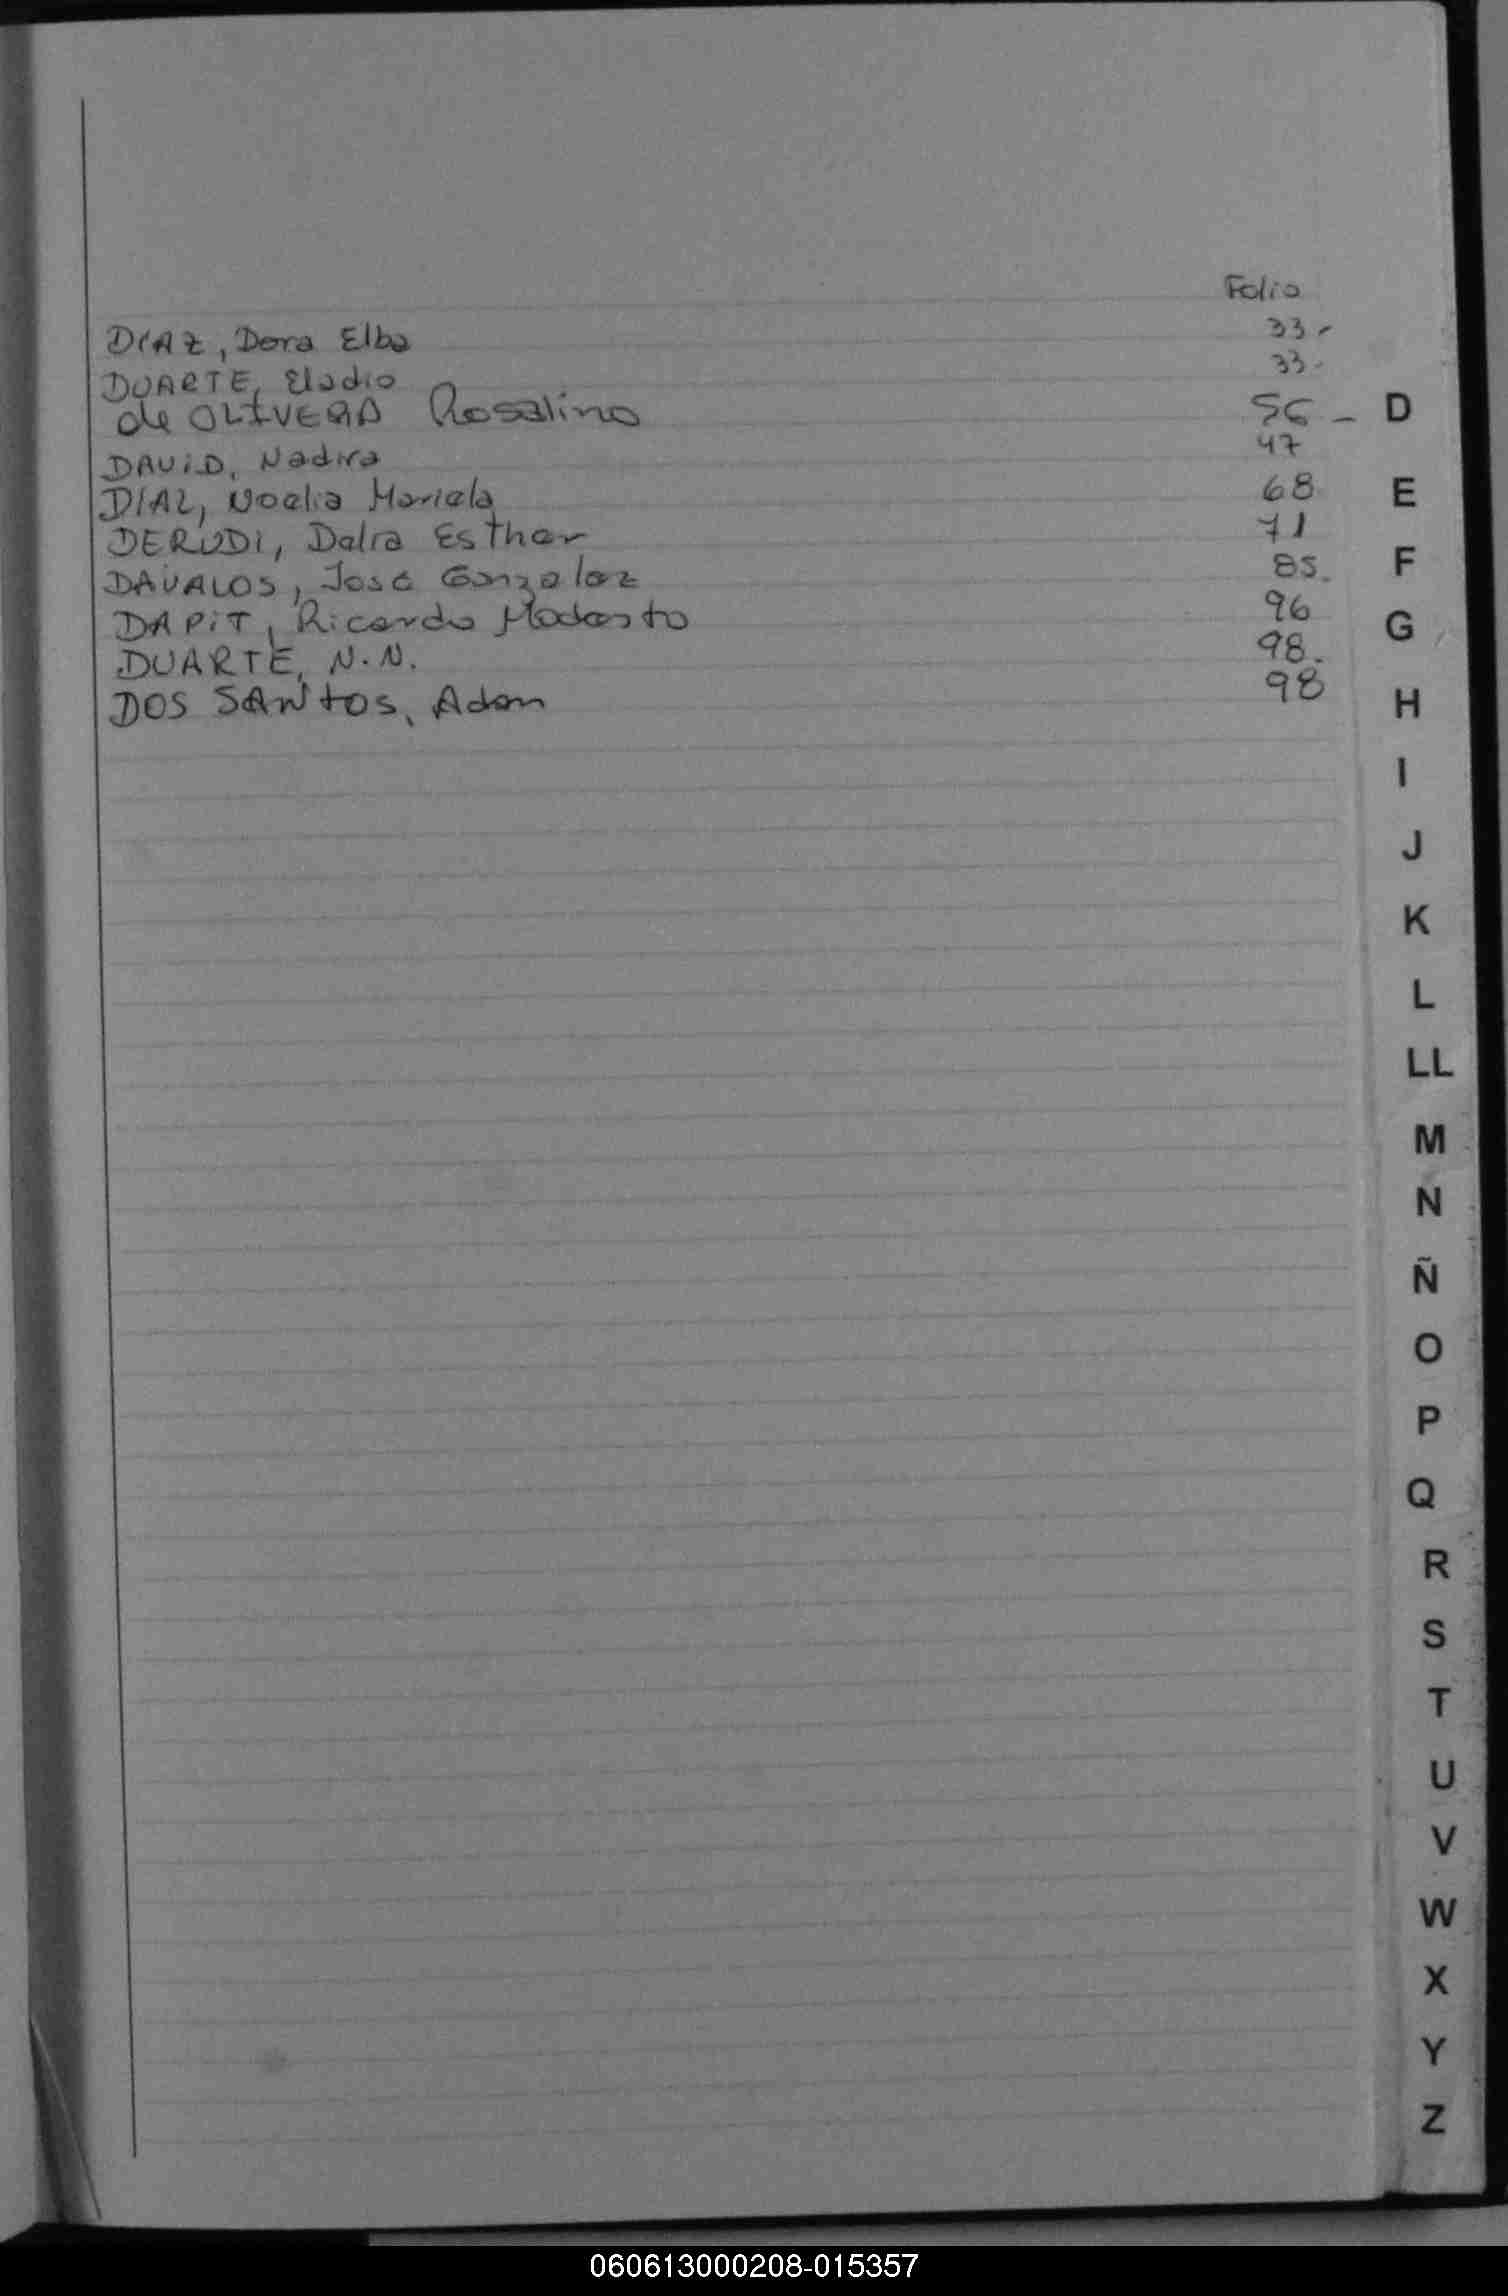 Folio
DIAZ, Dora Elba 33-
DUARTE, Eladio 33-
de OLIVERA Rosalino 56 - D
DAVID, Nadira 47
DIAZ, Noelia Mariela 68 E
DERUDI, Delia Esther 71
DAVALOS, José Gonzalez 85. F
DAPIT, Ricardo Modesto 96 G
DUARTE, N.N. 98.
DOS SANtos, Adan 98 H
I
J
K
L
LL
M
N
Ñ
O
P
Q
R
S
T
U
V
W
X
Y
Z
060613000208-015357